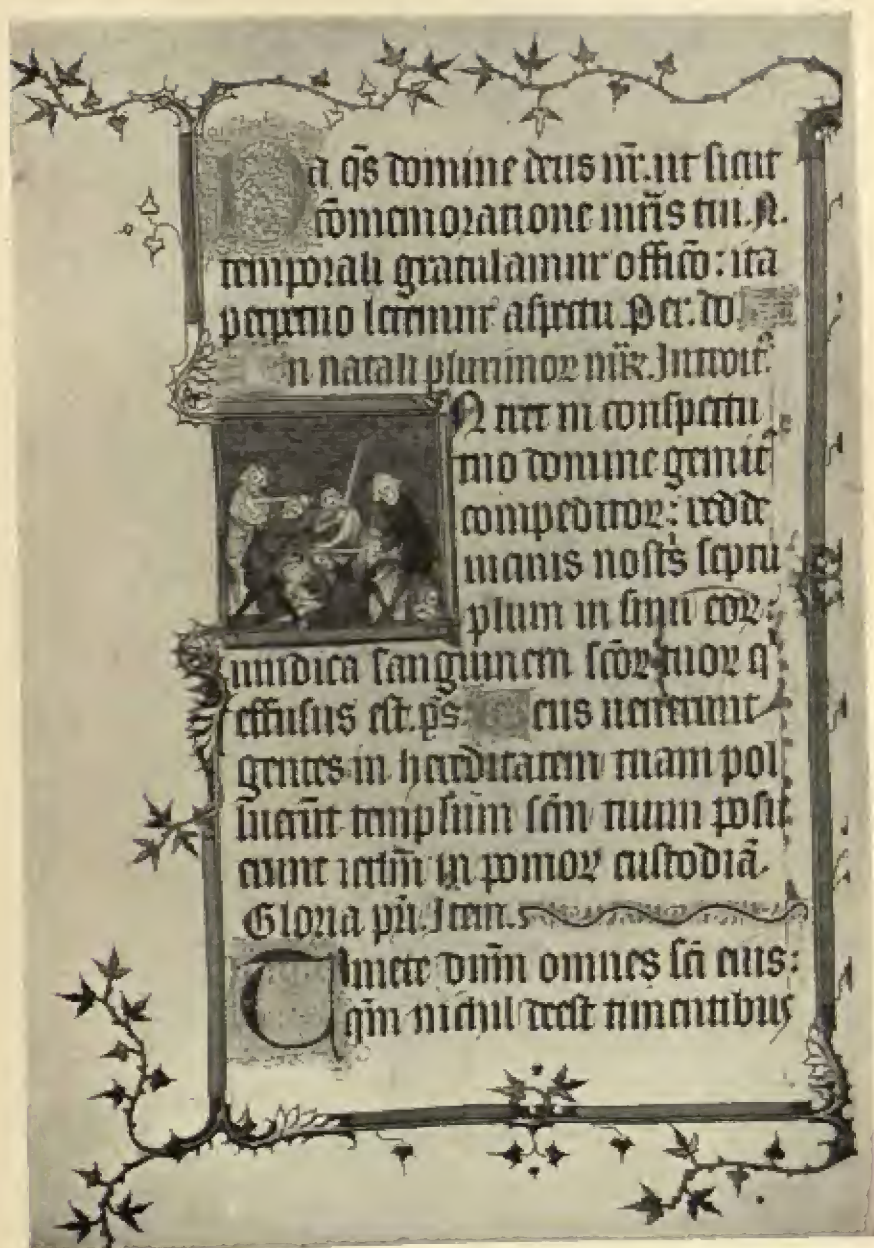 Da q̄s domine deus nr̄. ut sicut
cōmemoratione mr̄is tui. N.
temporali gratulamur officō: ita
perpetuo letemur aspectu. Per. do
In natali plurimoꝝ mr̄. Introit᾿.
Ntret in conspectu
tuo domine gemit᾿
compeditoꝝ: redde
uicinis nostr̄s septu
plum in sinu eoꝝ:
uindica sanguinem sc̄oꝝ tuoꝝ q᾿
effusus est. p̄s. Deus uenerunt
gentes in hereditatem tuam pol
luerūt templum sc̄m tuum posu
erunt ierlm̄ in pomoꝝ custodiā.
Gloria pr̄i. Item.
Timete dn̄m omnes sc̄i eius:
qm̄ nichil deest timentibus